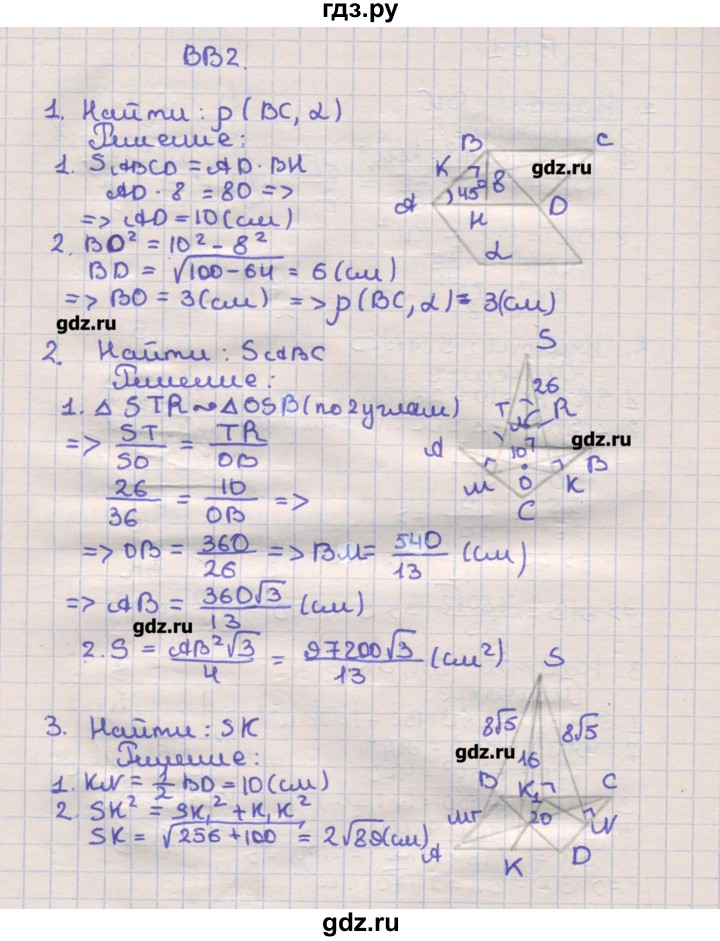 гдз.ру
ВВ2.
1. Найти: p(BC, α)
Решение:
1. SABCD = AD · BH
AD · 8 = 80 =>
=> AD = 10 (см)
2. BD² = 10² - 8²
BD = √100-64 = 6 (см)
=> BO = 3 (см) => p(BC, α) = 3(см)
B C
K 8
gdz.ru
A 45° D
H
α
gdz.ru
2. Найти: SABC
Решение:
1. Δ STR ~ Δ OSB (по 2 углам)
=> ST/SO = TR/OB
26/36 = 10/OB =>
=> OB = 360/26 => BM = 540/13 (см)
=> AB = 360√3/13 (см)
gdz.ru
2. S = AB²√3/4 = 97200√3/13 (см²)
S
26
T R
gdz.ru
A 10 B
M O K
C
3. Найти: SK
Решение:
1. KN = 1/2 BD = 10 (см)
2. SK² = SK₁² + K₁K²
SK = √256+100 = 2√89(см)
S
8√5 8√5
gdz.ru
16
B K₁ C
20 N
A K D
gdz.ru